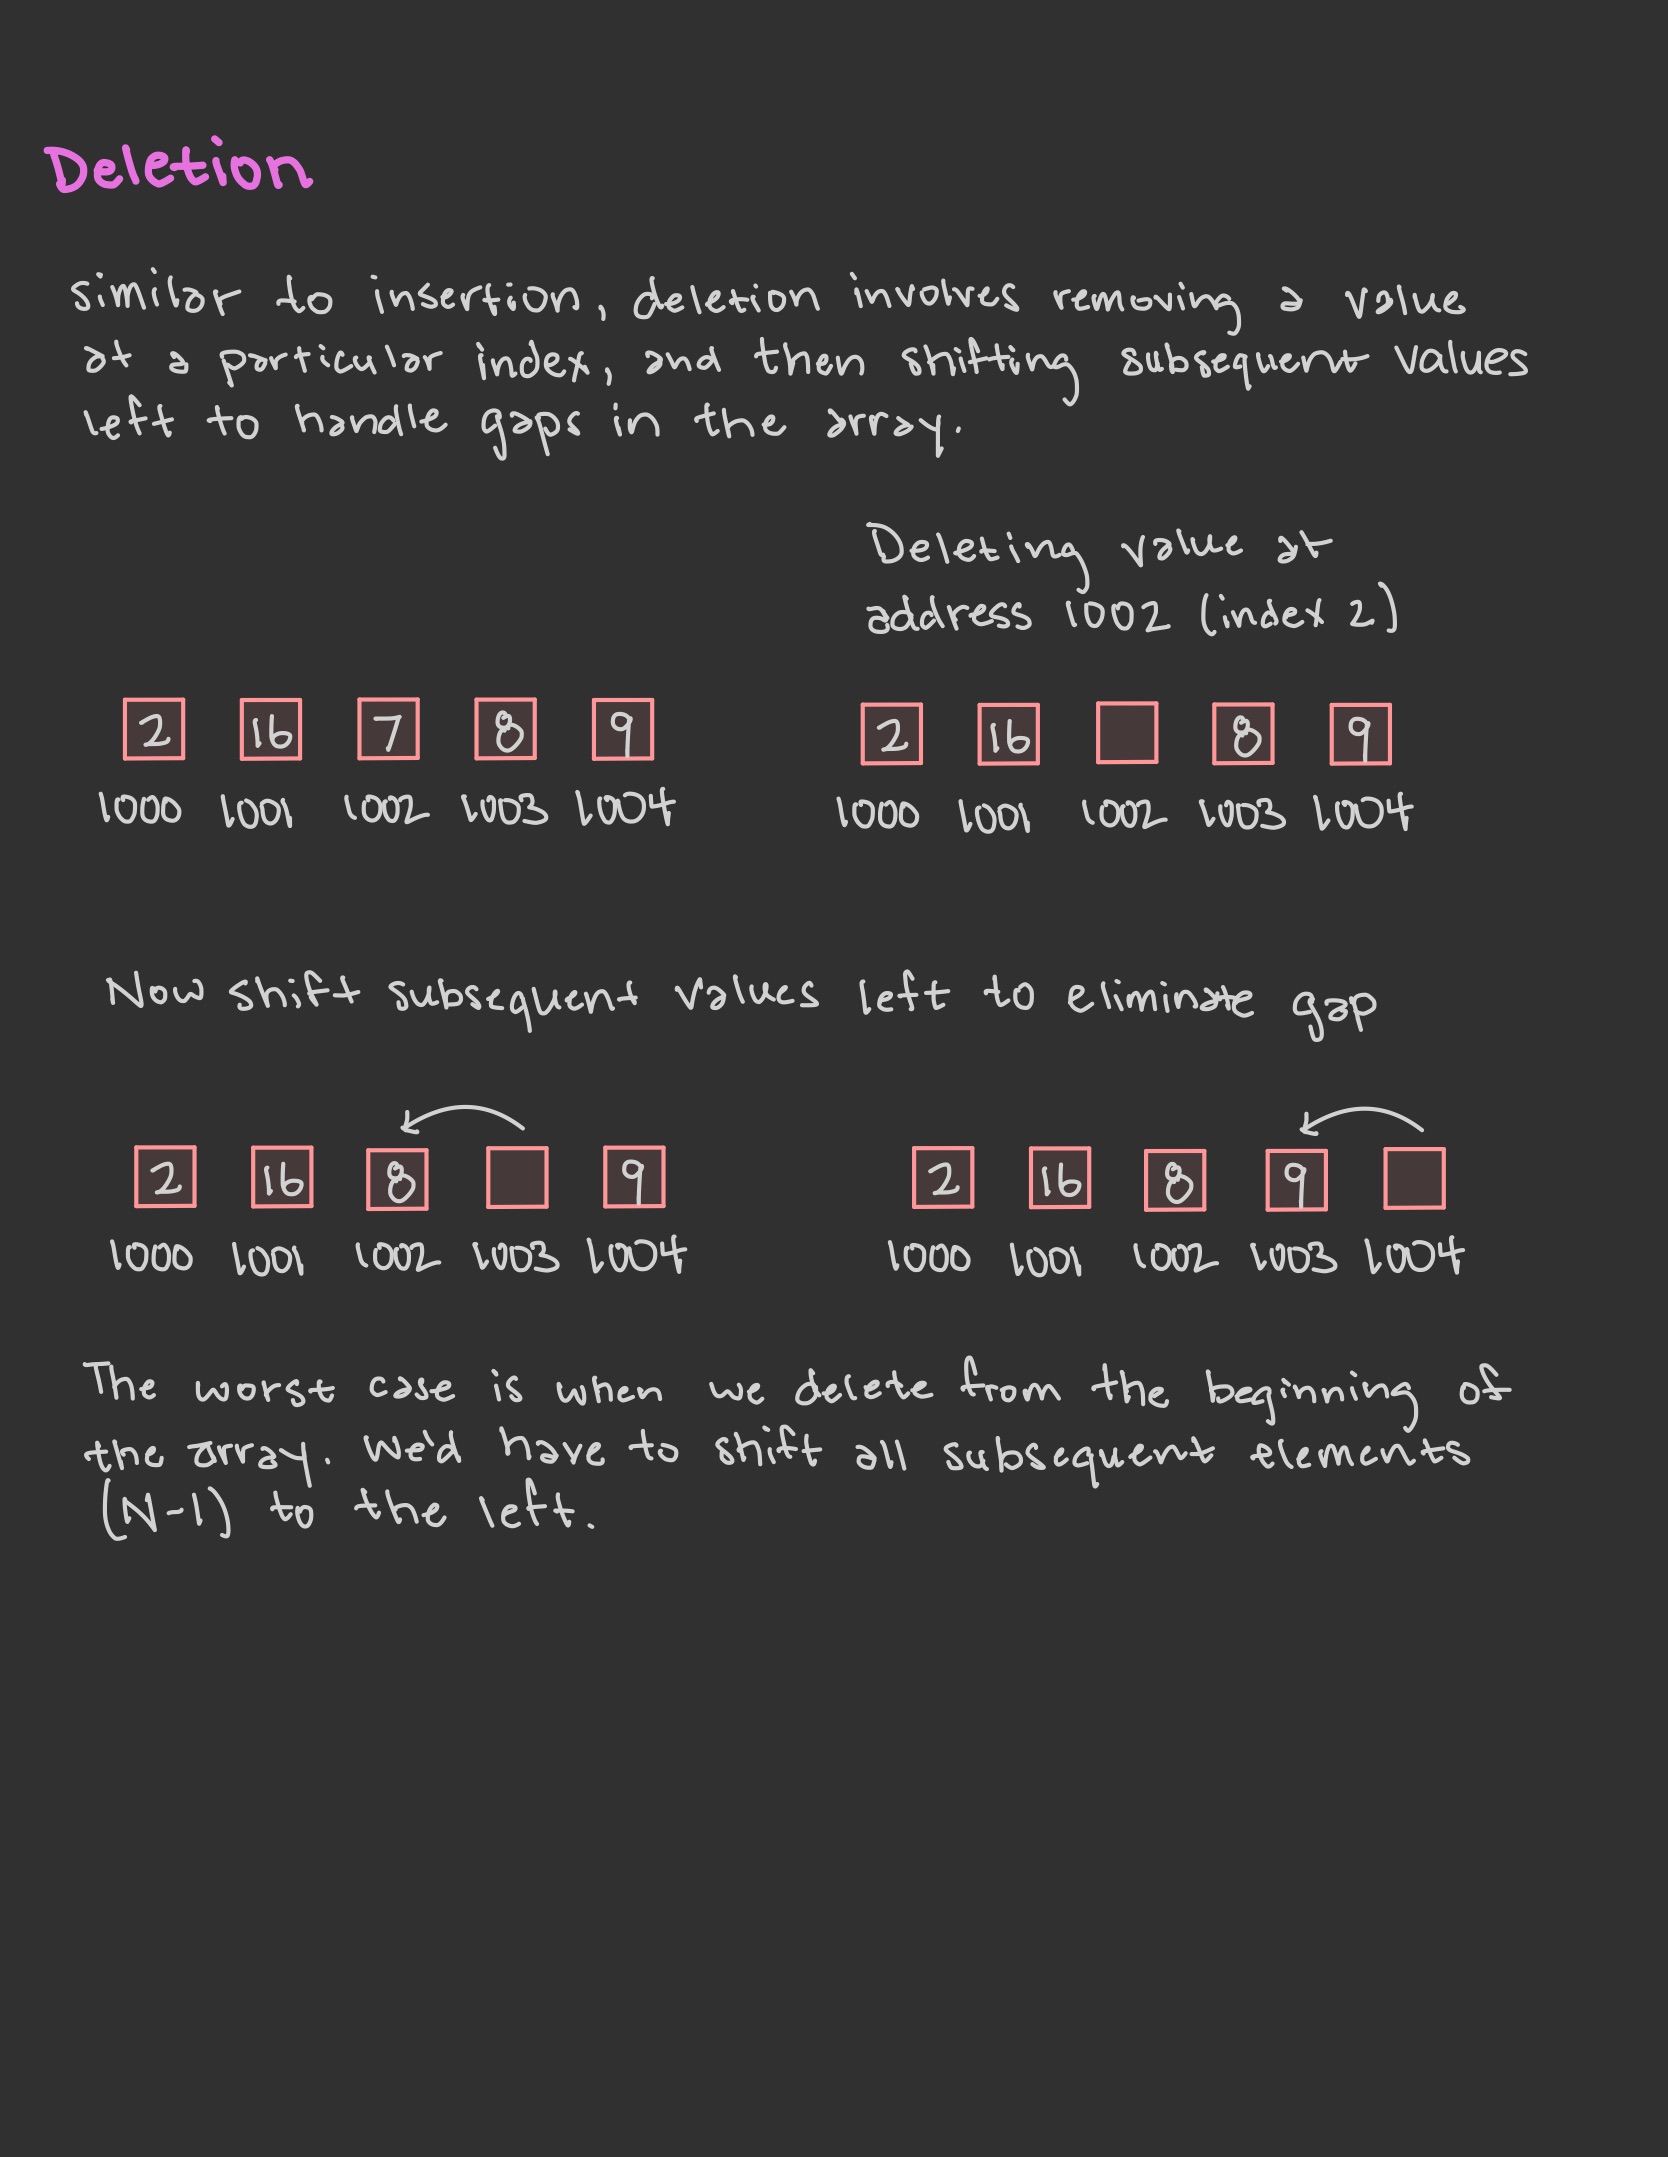 Deletion
similar to insertion, deletion involves removing a value
at a particular index, and then shifting subsequent values
left to handle gaps in the array.
Deleting value at
address 1002 (index 2)
2 16 7 8 9
1000 1001 1002 1003 1004
2 16 8 9
1000 1001 1002 1003 1004
Now shift subsequent values left to eliminate gap
2 16 8 9
1000 1001 1002 1003 1004
2 16 8 9
1000 1001 1002 1003 1004
The worst case is when we delete from the beginning of
the array. We'd have to shift all subsequent elements
(N-1) to the left.